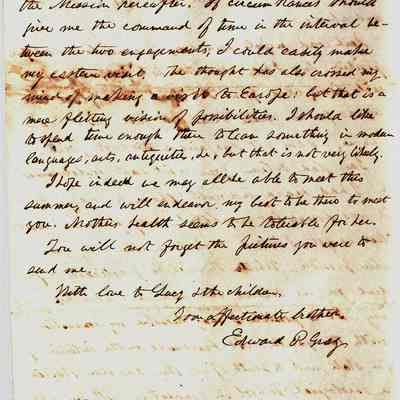 the Mission hereafter. If circumstances should
give me the command of time in the interval be-
tween the two engagements, I could easily make
my eastern visit. The thought has also crossed my
mind of making a visit to Europe: but that is a
mere fleeting vision of possibilities. I should like
to spend time enough there to learn something in modern
languages, arts, antiquities, &c, but that is not very likely.
I hope indeed we may all be able to meet this
summer, and will endeavor my best to be there to meet
you. Mothers health seems to be tolerable for her.
You will not forget the pictures you were to
send me.
With love to Lucy & the children,
Your affectionate brother
Edward P. Gray